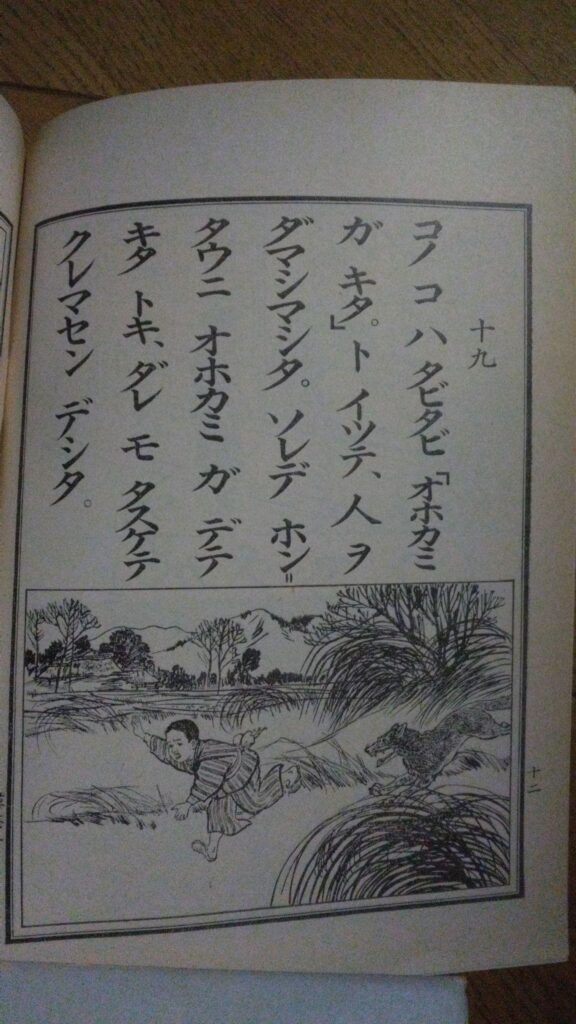 十九
コノ コ ハ タビタビ 「オホカミ
ガ キタ。」 ト イツテ、 人 ヲ
ダマシマシタ。 ソレデ ホン=
タウニ オホカミ ガ デテ
キタ トキ、 ダレ モ タスケテ
クレマセン デシタ。
十二